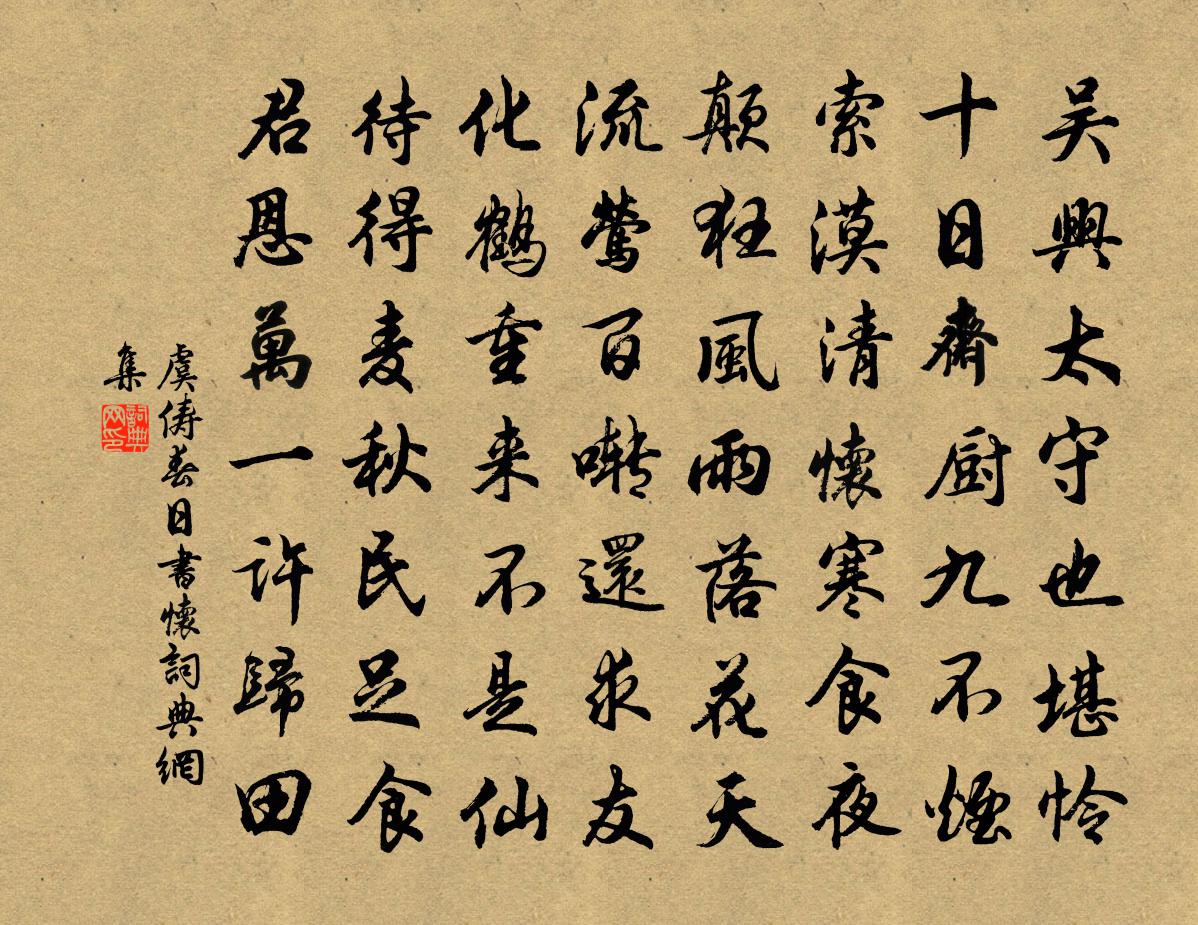 吴興太守也堪怜
十日齋厨九不煙
索漠清懷寒食夜
顛狂風雨落花天
流鶯百囀還求友
化鶴重来不是仙
待得麦秋民足食
君恩萬一許歸田
虞儔春日書懷詞典網
集
詞典网印